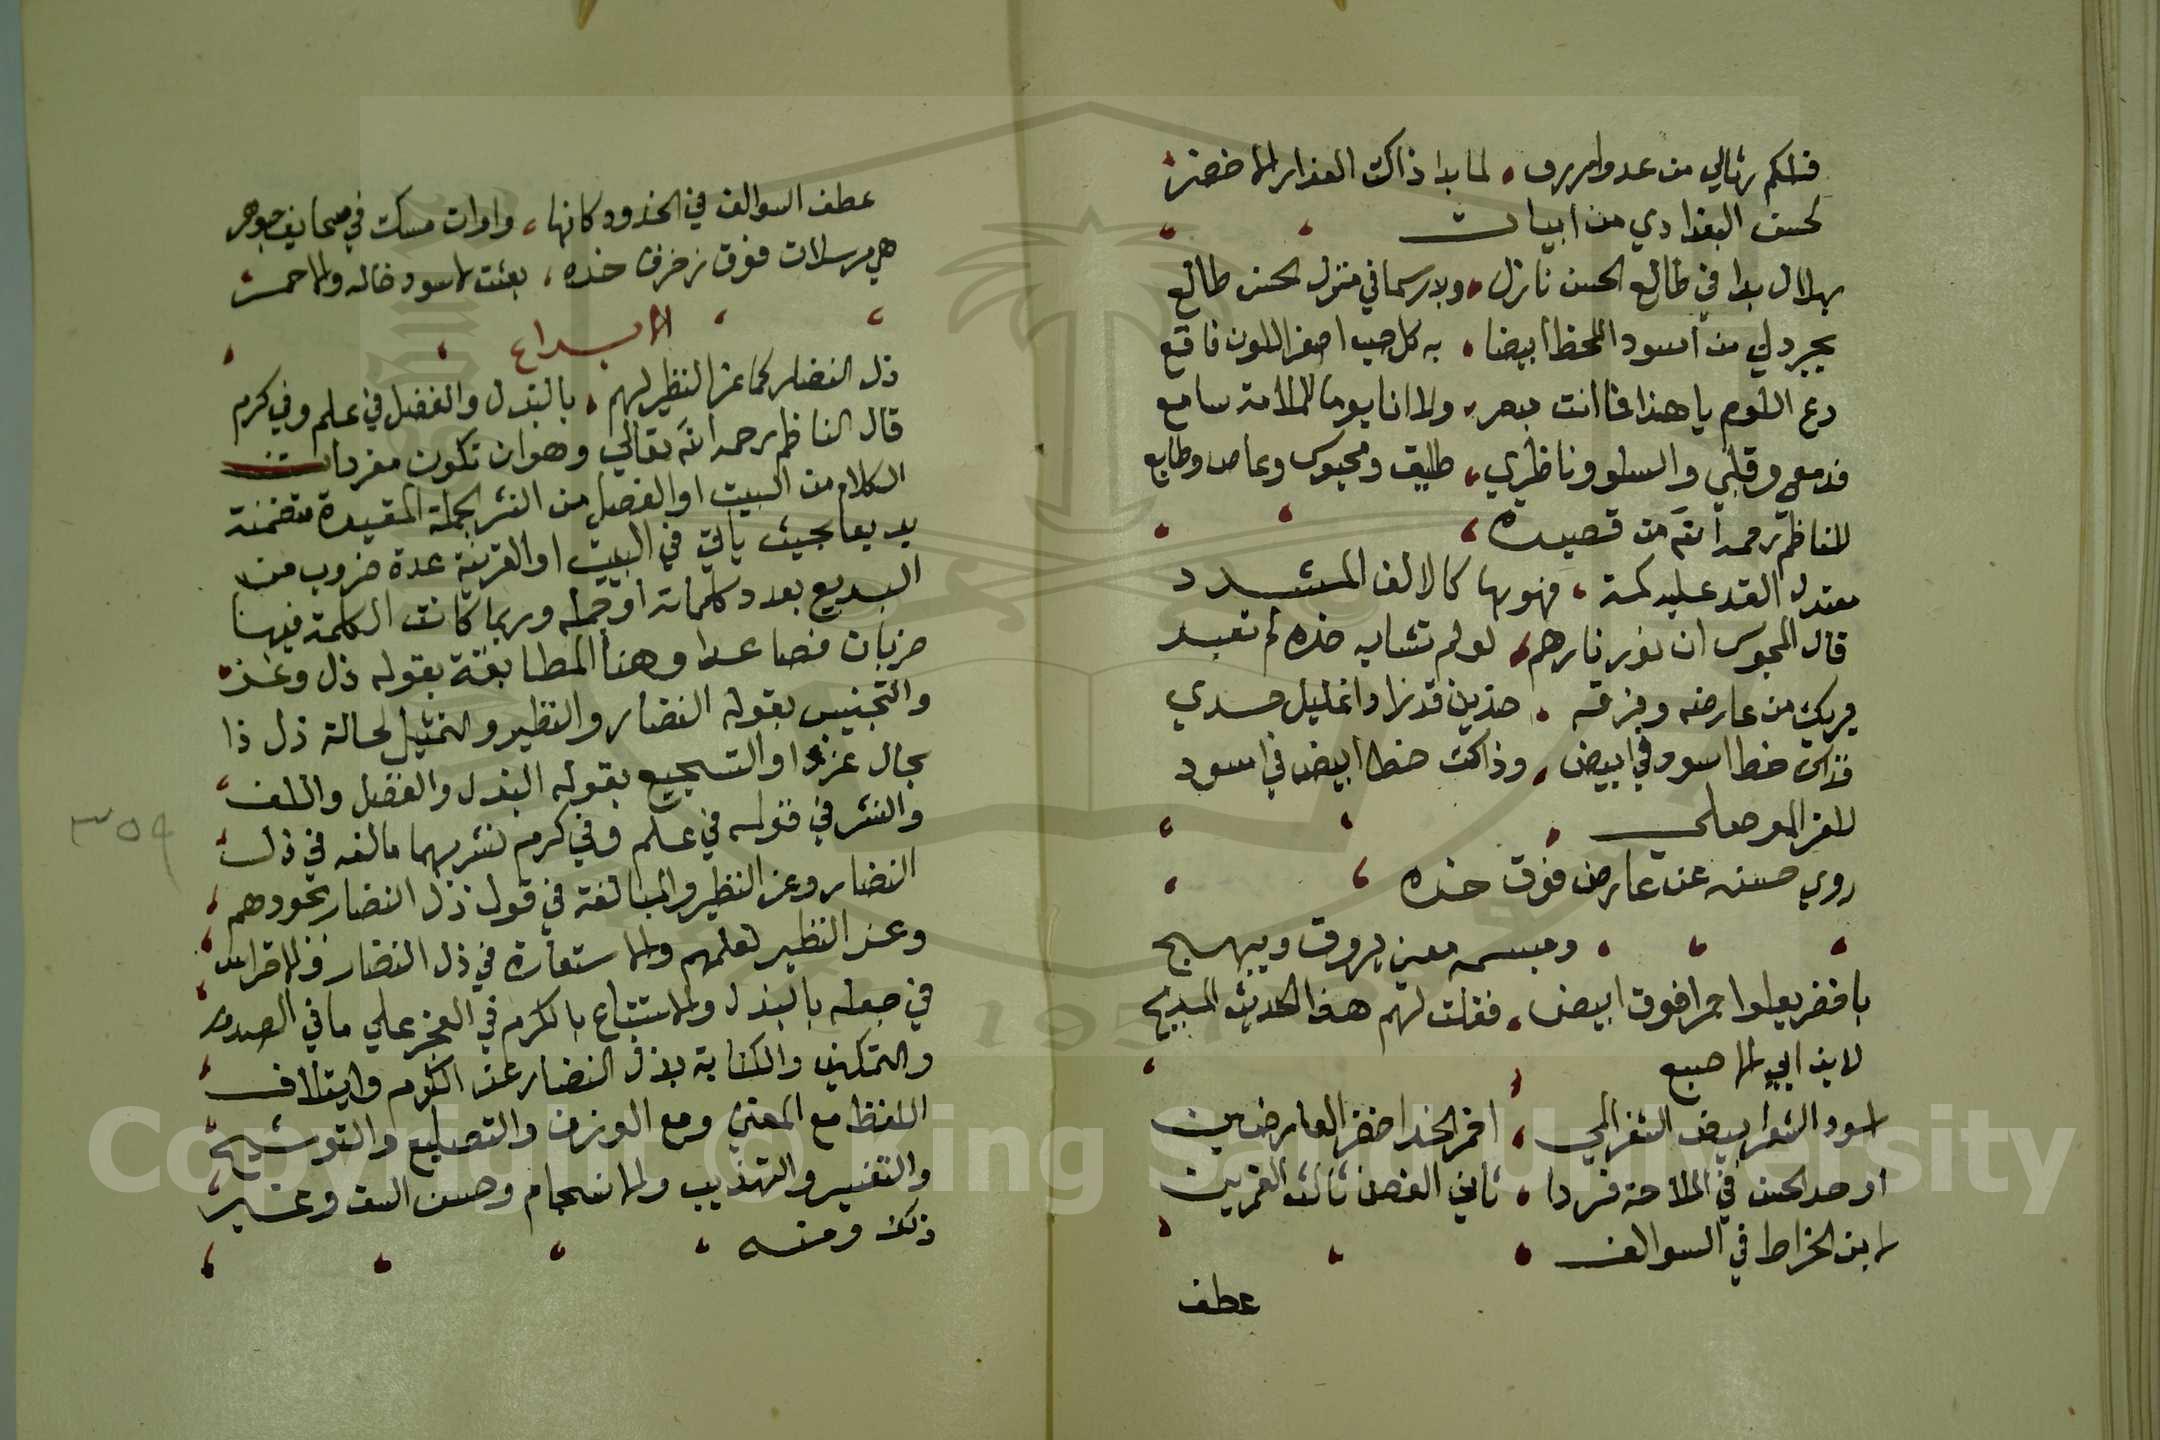 فلكم رثالي من عدو ازرق ، لما بدا ذاك العذار الاخضر
لحسن البغدادي من ابيات
هلال بدا في طالع الحسن نازل ، وبدر سما في منزل الحسن طالع
يجرد لي من اسود اللحظ ابيضا ، به كل صب اصفر اللون فاقع
دع اللوم يا هذا فما انت مبصر ، ولا انا يوما للملامة سامع
فدمعي وقلبي والسلو وناظري ، طليق ومحبوس وعاص وطايع
للناظم رحمه الله من قصيدة ،
معتدل القد عليه كمة ، فهو بها كالالف المشدد
قال المجوس ان نور نارهم ، لو لم تشابه خده لم تعبد
يريك من عارضه وفرقه ، ضدين قد زادا غليل جسدي
فذاك خط اسود في ابيض ، وذاك خط ابيض في اسود
للعز الموصلي
روي حسنه عن عارض فوق خده
ومبسمه معنى يروق ويبهج
باخضر يعلو احمرا فوق ابيض ، فقلت لهم هذا الحديث المدبج
لابن ابي الاصبع
اسود الشعر ابيض الثغر المي ، احمر الخد اخضر العارضين
اوحد الحسن في الملاحة فردا ، ثاني الغصن ثالث القمرين
لابن الخراط في السوالف
عطف
عطف السوالف في الخدود كانها ، واوات مسك في صحايف جوهر
هي مرسلات فوق زخرف خده ، بعثت لاسود خاله والاحمر
الابداع
ذل النضار كما عز النظير لهم ، بالبذل والفضل في علم وفي كرم
قال الناظم رحمه الله تعالي وهو ان تكون مفردات
الكلام من البيت او الفصل من النثر الجملة المقيدة متضمنة
بديعا بحيث ياتي في البيت او القرينة عدة ضروب من
البديع بعدد كلماته او جمله وربما كانت الكلمة فيها
ضربان فصاعدا وهنا المطابقة بقوله ذل وعز
والتجنيس بقوله النضار والنظير والتمثيل لحالة ذل ذا
بحال عز ذا والتسجيع بقوله البذل والفضل واللف
والنشر في قوله في علم وفي كرم نشر بهما ما لفه في ذل
النضار وعز النظير والمبالغة في قوله ذل النضار بجودهم
وعز النظير لعلمهم والاستعارة في ذل النضار
في جعله بالبذل والاستتباع بالكرم في العجز علي ما في الصدر
والتمكين والكناية بذل النضار عن الكرم وايتلاف
اللفظ مع المعني ومع الوزن والتصليع والتوشيح
والتفسير والتهذيب والانسجام وحسن النسق وغير
ذلك ومنه
٣٥٩
Copyright © King Saud University
1957